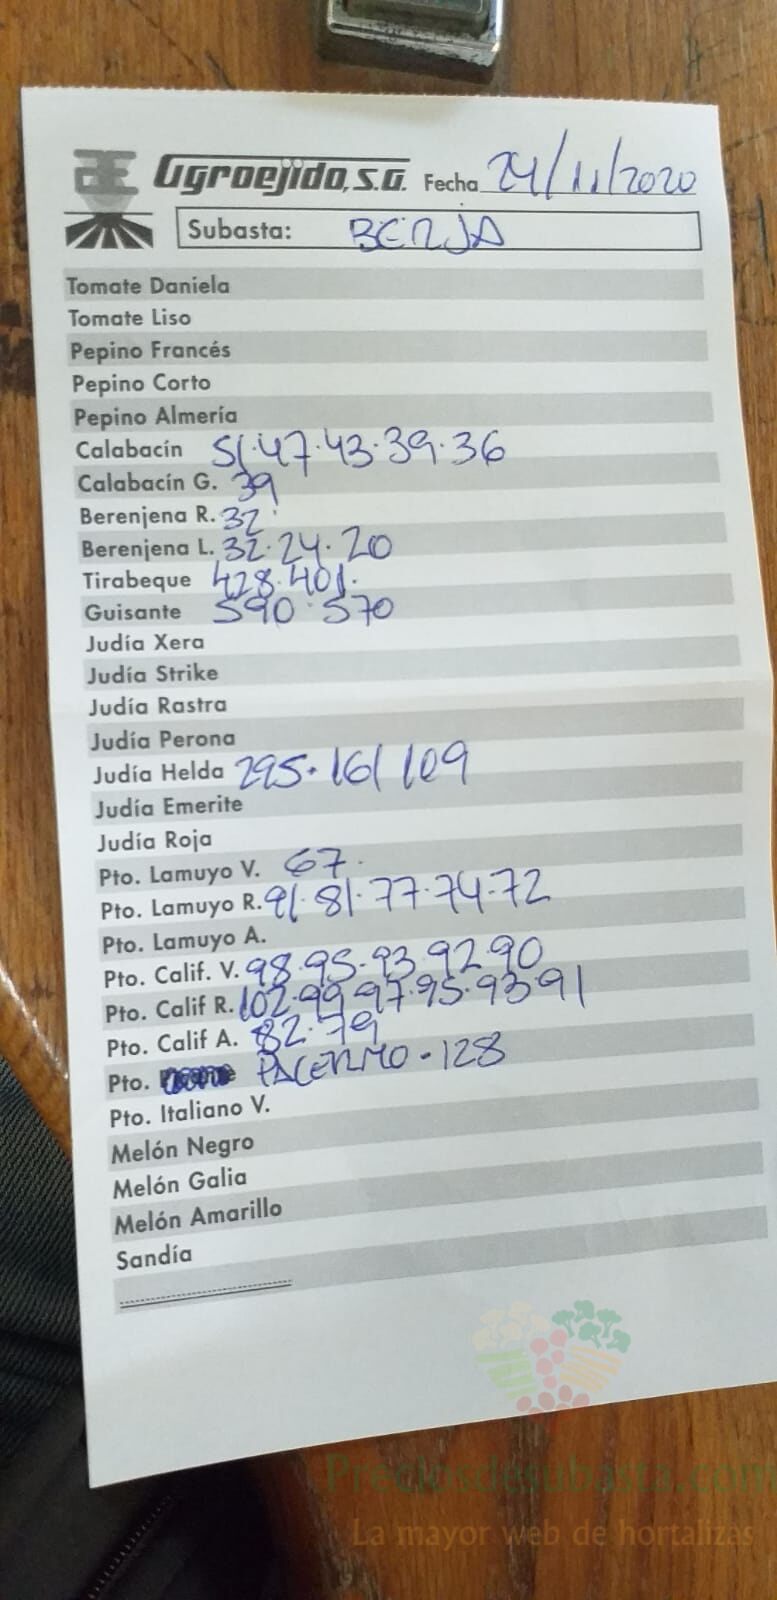 Agroejido, S.A. Fecha 24/11/2020
Subasta: BERJA
Tomate Daniela
Tomate Liso
Pepino Francés
Pepino Corto
Pepino Almería
Calabacín 51·47·43·39·36
Calabacín G. 39
Berenjena R. 32
Berenjena L. 32·24·20
Tirabeque 428·401·
Guisante 590·570
Judía Xera
Judía Strike
Judía Rastra
Judía Perona
Judía Helda 295·161 109
Judía Emerite
Judía Roja
Pto. Lamuyo V. 67·
Pto. Lamuyo R. 91·81·77·74·72
Pto. Lamuyo A.
Pto. Calif. V. 98·95·93·92·90
Pto. Calif R. 102·99·97·95·93·91
Pto. Calif A. 82·79
Pto. PALERMO·128
Pto. Italiano V.
Melón Negro
Melón Galia
Melón Amarillo
Sandía
Preciosdesubasta.com
La mayor web de hortalizas